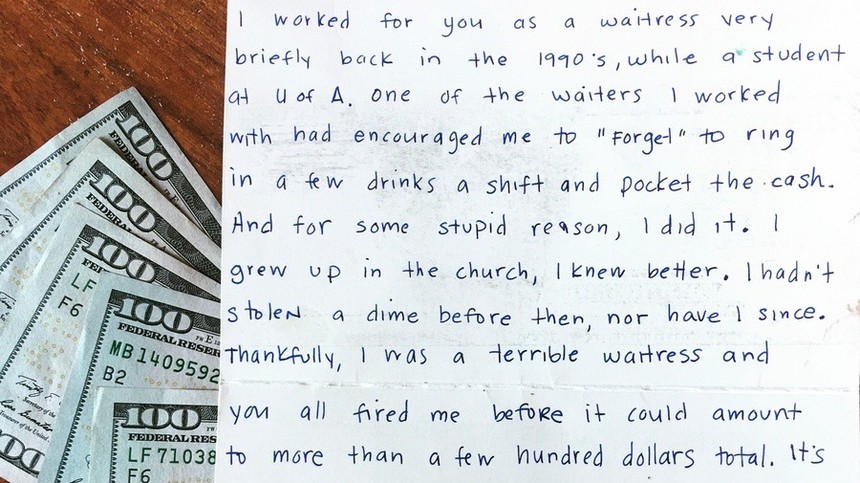 I worked for you as a waitress very
briefly back in the 1990's, while a student
at U of A. One of the waiters I worked
with had encouraged me to "forget" to ring
in a few drinks a shift and pocket the cash.
And for some stupid reason, I did it. I
grew up in the church, I knew better. I hadn't
stolen a dime before then, nor have I since.
Thankfully, I was a terrible waitress and
you all fired me before it could amount
to more than a few hundred dollars total. It's
100
FEDERAL
100
FEDER
100
FE
LF
F6
100
FEDERAL RESER
MB1409592
B2
100
FEDERAL RES
LF71038
F6
Secretary of the
Treasurer of the United
00